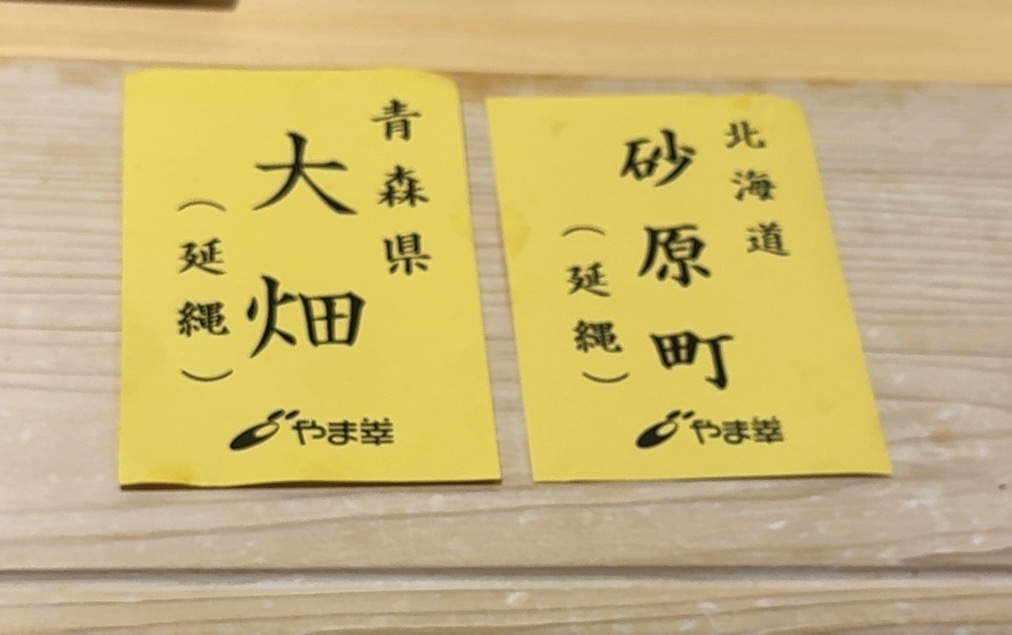 青森県
大畑
（延縄）
やま幸
北海道
砂原町
（延縄）
やま幸